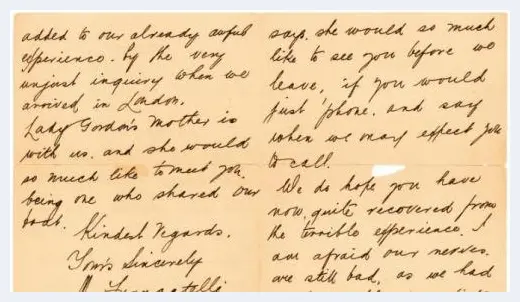 added to our already awful
experience. by the very
unjust inquiry when we
arrived in London.
Lady Gordon's Mother is
with us. and she would
so much like to meet you.
being one who shared our
boat.
Kindest Regards.
Yours Sincerely
says. she would so much
like to see you before we
leave, if you would
just 'phone. and say
when we may expect you
to call.
We do hope you have
now, quite recovered from
the terrible experience. I
am afraid our nerves.
are still bad, as we had